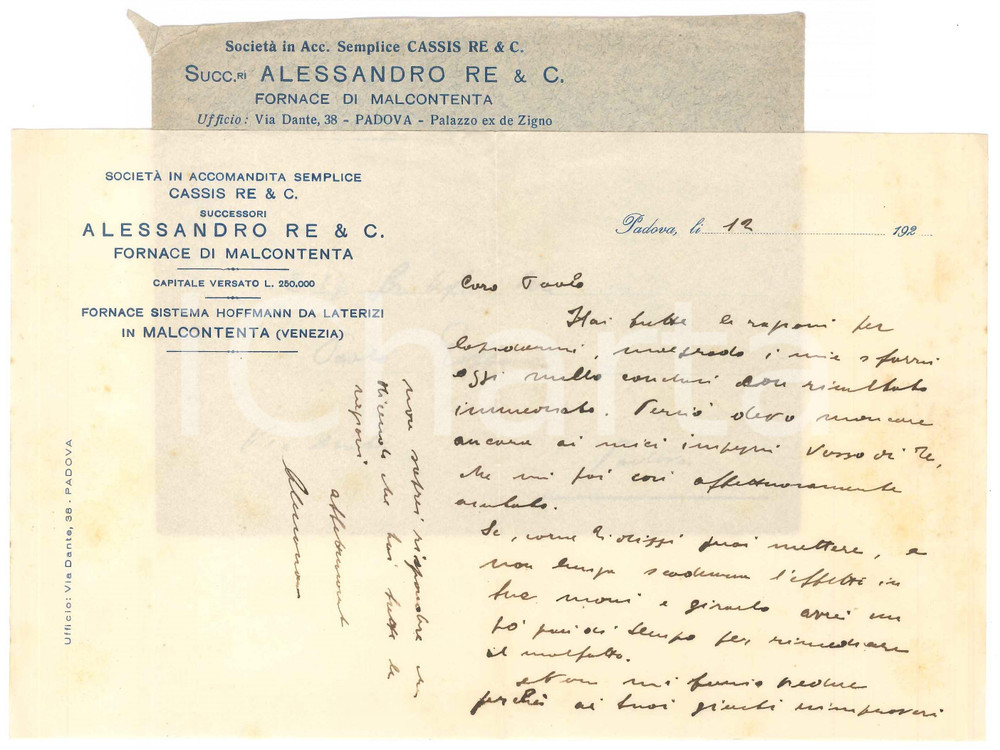 Società in Acc. Semplice CASSIS RE & C.
SUCC.RI ALESSANDRO RE & C.
FORNACE DI MALCONTENTA
Ufficio: Via Dante, 38 - PADOVA - Palazzo ex de Zigno
SOCIETÀ IN ACCOMANDITA SEMPLICE
CASSIS RE & C.
SUCCESSORI
ALESSANDRO RE & C.
FORNACE DI MALCONTENTA
CAPITALE VERSATO L. 250.000
FORNACE SISTEMA HOFFMANN DA LATERIZI
IN MALCONTENTA (VENEZIA)
Ufficio: Via Dante, 38 - PADOVA
Padova, li 12 192
Caro Paolo
Hai tutte le ragioni per
lagnarmi, malgrado i miei sforzi
oggi nulla conclusi con risultato
immediato. Perciò devo mancare
ancora ai miei impegni verso di Te,
che mi fai così affettuosamente
aiutato.
Se, come Ti dissi puoi mettere, a
non lunga scadenza l'effetto in
tue mani e girarlo avrei un
po' più di tempo per rimediare
il malfatto.
Non mi faccio vedere
perché ai tuoi giusti rimproveri
non saprei rispondere che
dicendo che hai tutte le
ragioni
Alessandro
iCharta